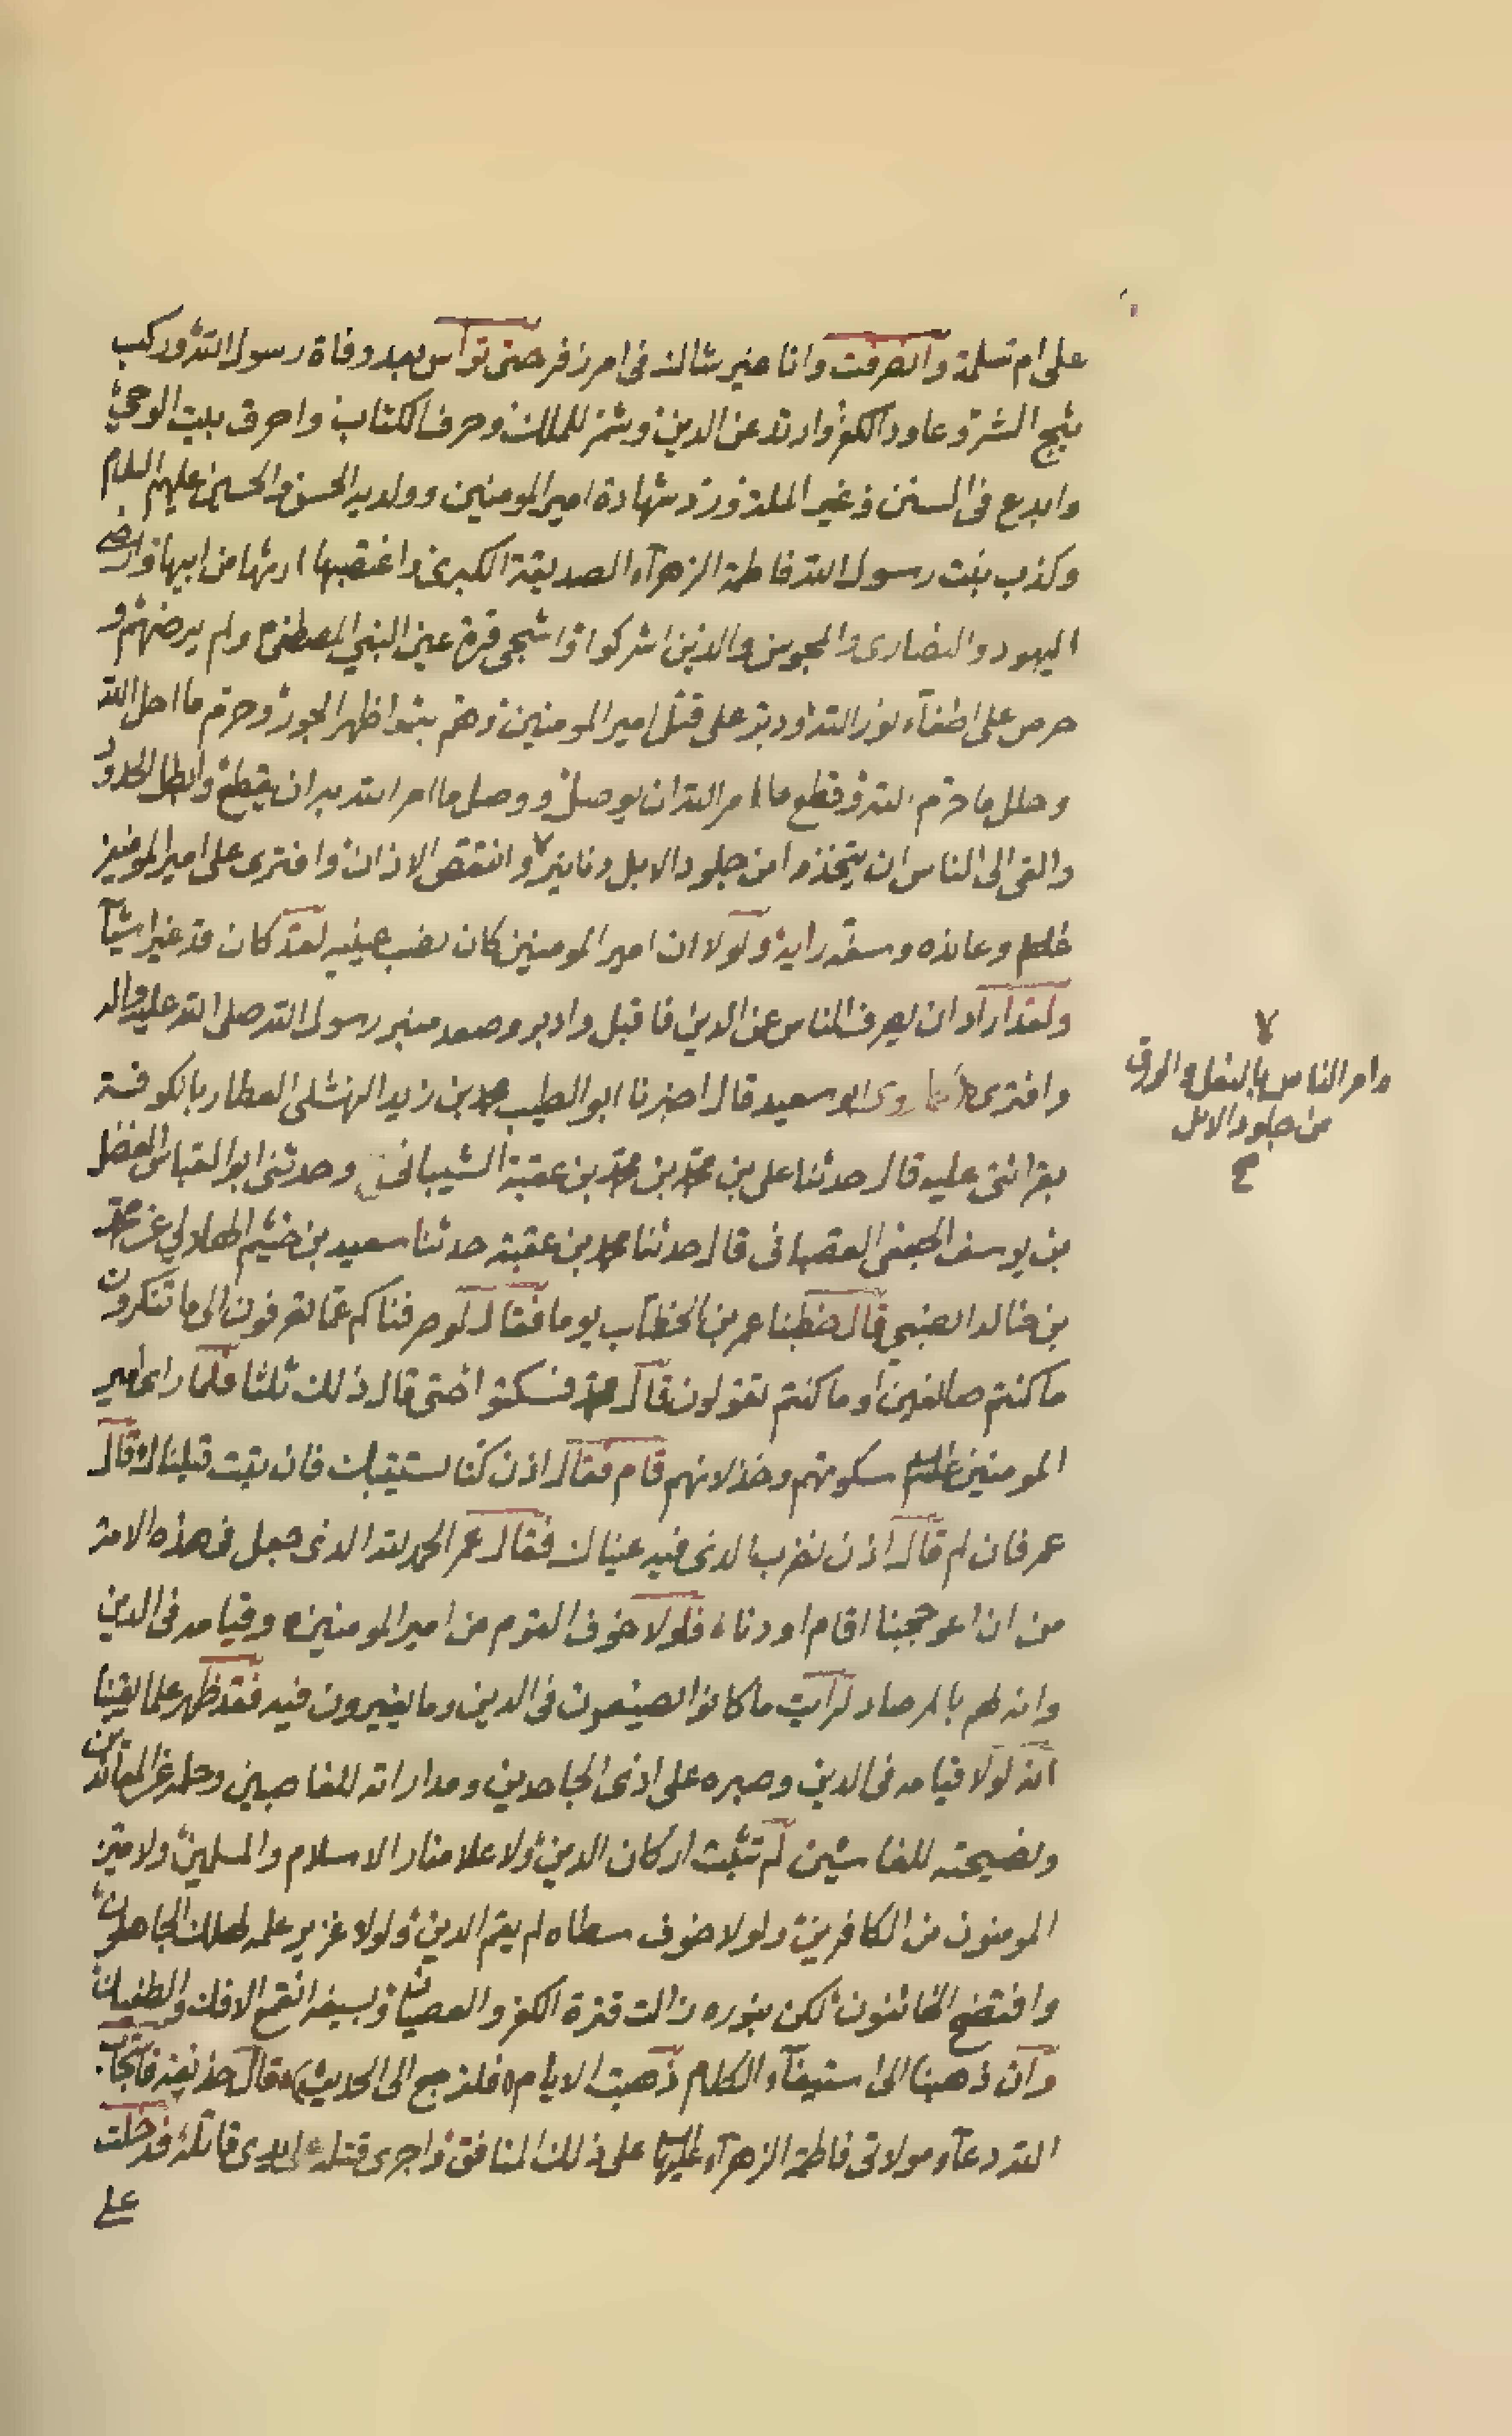 على ام سلمة وانصرفت وانا غير شاك في امر زفر حتى تواس بعد وفاة رسول الله وركب
ثبج الشر وعاود الكفر وارتد عن الدين وشمر للملك وحرف الكتاب واحرق بيت الوحي
وابدع في السنن وغير الملة ورد شهادة امير المومنين وولديه الحسن والحسين عليهم السلام
وكذب بنت رسول الله فاطمة الزهرآء الصديقة الكبرى واغتصبها ارثها من ابيها وارضى
اليهود والنصارى والمجوس والذين اشركوا واشجى قرة عين النبي المصطفى ولم يرضهم و
حرص على اطفآء نور الله ودبر على قتل امير المومنين وهم بثم واظهر الجور وحرم ما احل الله
وحلل ما حرم الله وقطع ما امر الله ان يوصل ووصل ما امر الله به ان يقطع وابطل الحدود
والقى الى الناس ان يتخذوا من جلود الابل دنانير وانتقص الاذان وافترى على امير المومنين
عليه السلم وعانده وسفه رايه ولولا ان امير المومنين كان نصب عينيه لقد كان قد غير اشيآ
ولقد اراد ان يصرف الناس عن الدين فاقبل وادبر وصعد منبر رسول الله صلى الله عليه واله
وافترى كما روى ابو سعيد قال اخبرنا ابو الطيب محمد بن زيد النهشلي العطار بالكوفة
بقرائتى عليه قال حدثنا على بن محمد بن محمد بن عقبة الشيبانى وحدثنى ابو العباس الفضل
بن يوسف الجعفى القصبانى قال حدثنا محمد بن عقبة حدثنا سعيد بن خثيم الهلالي عن محمد
بن خالد الضبي قال خطبنا عمر بن الخطاب يوما فقال لو صرفناكم عما تعرفون الى ما تنكرون
ما كنتم صانعين او ما كنتم تقولون قال محمد فسكتوا حتى قال ذلك ثلثا فلما راى امير
المومنين عليه السلم سكوتهم وخذلانهم قام فقال اذن كنا نستتيبك فان تبت قبلناك قال
عمر فان لم قال اذن نضرب الذى فيه عيناك فقال عمر الحمد لله الذى جعل فى هذه الامة
من ان اعوججنا اقام اودنا فلولا خوف القوم من امير المومنين وقيامه فى الدين
وانه لهم بالمرصاد لرايت ما كانوا يصنعون فى الدين وما يغيرون فيه فقد ظهر علما يقينا
انه لولا قيامه فى الدين وصبره على اذى الجاحدين ومداراته للغاصبين وحلمه عن المعاندين
ونصيحته للغاشين لم تثبت اركان الدين ولا علا منار الاسلام والمسلمين ولا ميز
المومنون من الكافرين ولولا خوف سطاه لم يقم الدين ولولا غزير علمه لهلك الجاهلون
وافتضح الخائنون لكن بنوره زالت قترة الكفر والعصيان وبسيفه انقمع الافك والطغيان
وان ذهبنا الى استيفآء الكلام ذهبت الايام فلنرجع الى الحديث وقال حذيفة فاستجاب
الله دعآء مولاتى فاطمة الزهرآء عليها السلم على ذلك المنافق واجرى قتله على يدى قاتله فدخلت
على
وامر الناس بالنعل والورق
من جلود الابل
صح